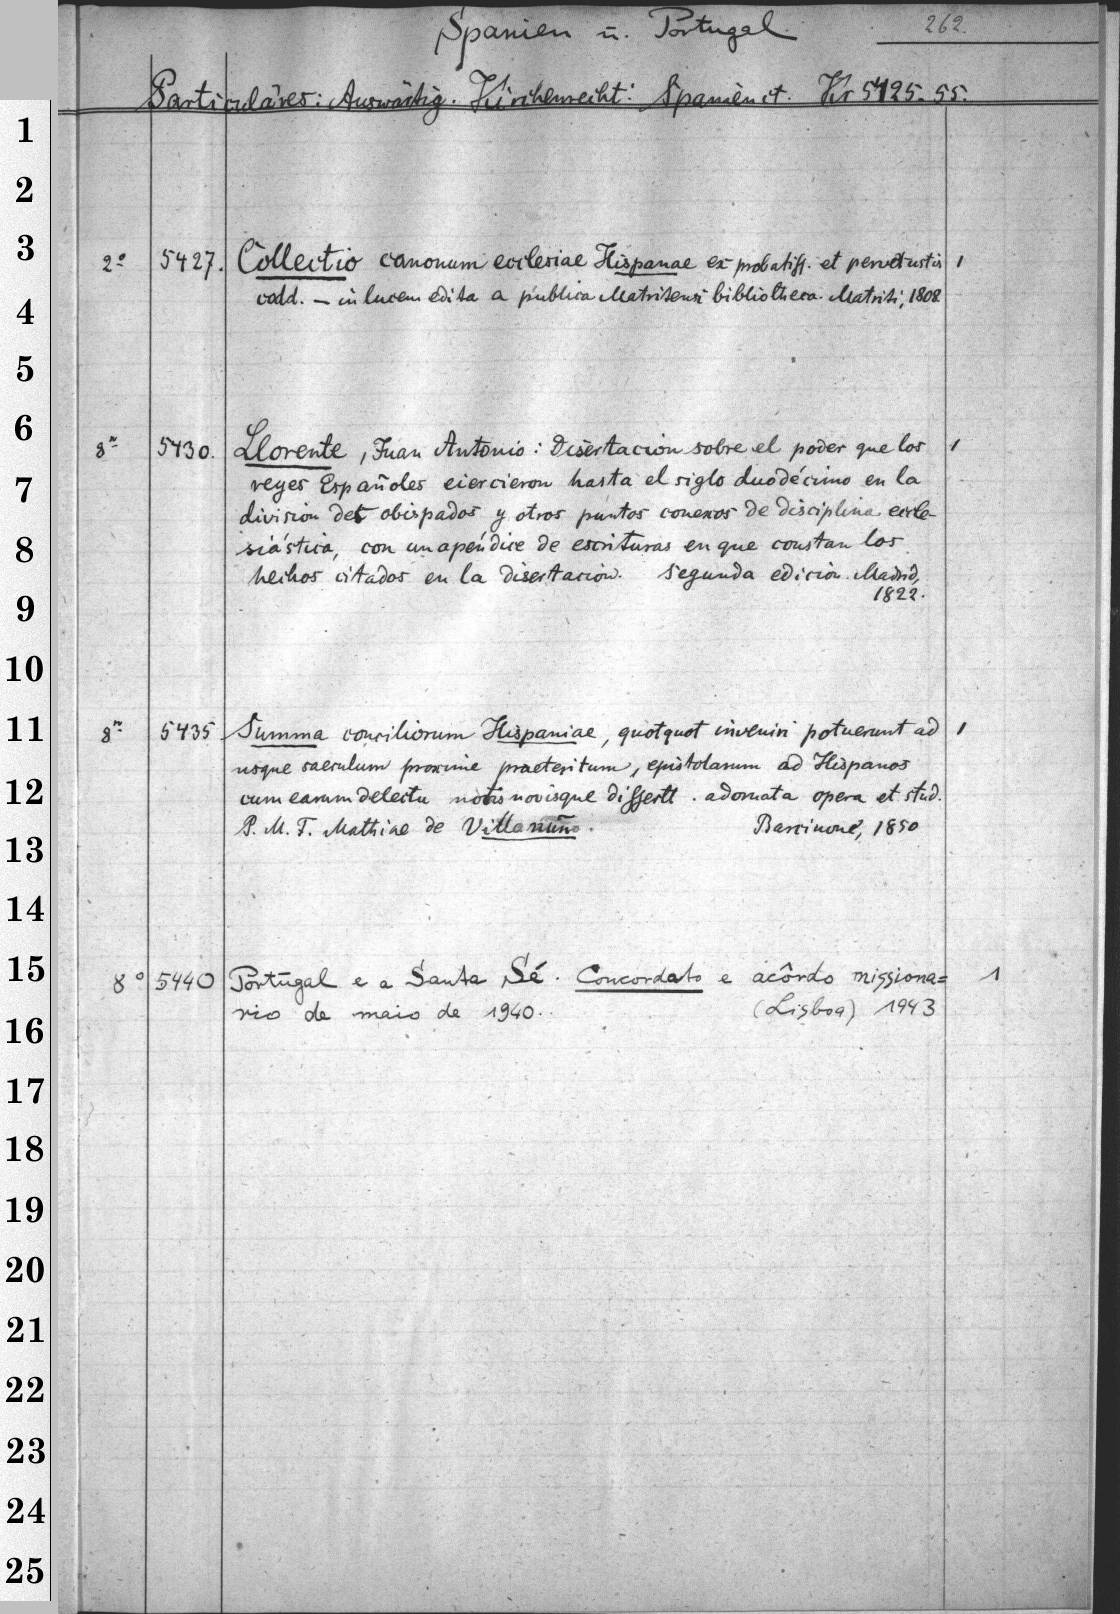 Spanien u. Portugal.
262.
Particuläres: Auswärtig. Kirchenrecht: Spanien ct. Kr 5425-55.
1
2
3
2° 5427. Collectio canonum ecclesiae Hispanae ex probatiss. et pervetustis 1
codd. – in lucem edita a publica Matritensi bibliotheca. Matriti, 1808
4
5
6
8° 5430. Llorente, Juan Antonio: Disertacion sobre el poder que los 1
reyes Españoles eiercieron hasta el siglo duodécimo en la
7
division de obispados y otros puntos conexos de disciplina ecle-
8
siástica, con un apéndice de escrituras en que constan los
hechos citados en la disertación. Segunda edición. Madrid,
1822.
9
10
11
8° 5435 Summa conciliorum Hispaniae, quotquot inveniri potuerunt ad 1
usque saeculum proxime praeteritum, epistolarum ad Hispanos
12
cum earum delectu notis novisque dissertt. adornata opera et stud.
P. M. F. Mathiae de Villanuño. Barcinone, 1850
13
14
15
8° 5440 Portugal e a Santa Sé. Concordato e acôrdo missiona= 1
rio de maio de 1940. (Lisboa) 1943
16
17
18
19
20
21
22
23
24
25